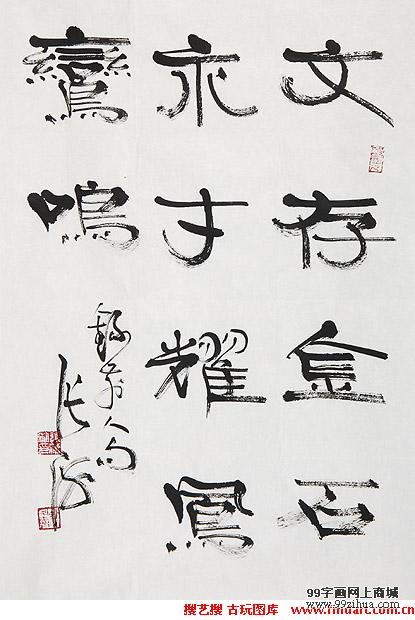 文存金石
永才耀鳳
鸞鳴
錄前人句
張海
99字画网上商城
www.99zihua.com
搜艺搜 古玩图库 www.findart.com.cn